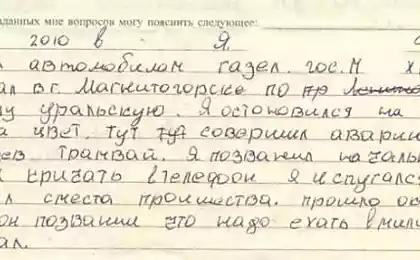 заданных мне вопросов могу пояснить следующее:
2010 в Я
автомобилом газел. гос. N х
ал в г. Магнитогорске по пр
му уральскую. Я остоновился на
а цвет. тут тут совершил аварию
ев трамвай. Я позванил начал
кричать в телефон я испугалс
л с места проишества. прошло ок
он позванил что надо ехать в мили
ал.